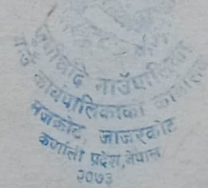 गाउँपालिका
गाउँ कार्यपालिकाको कार्यालय
मजकोट, जाजरकोट
कर्णाली प्रदेश, नेपाल
२०७३